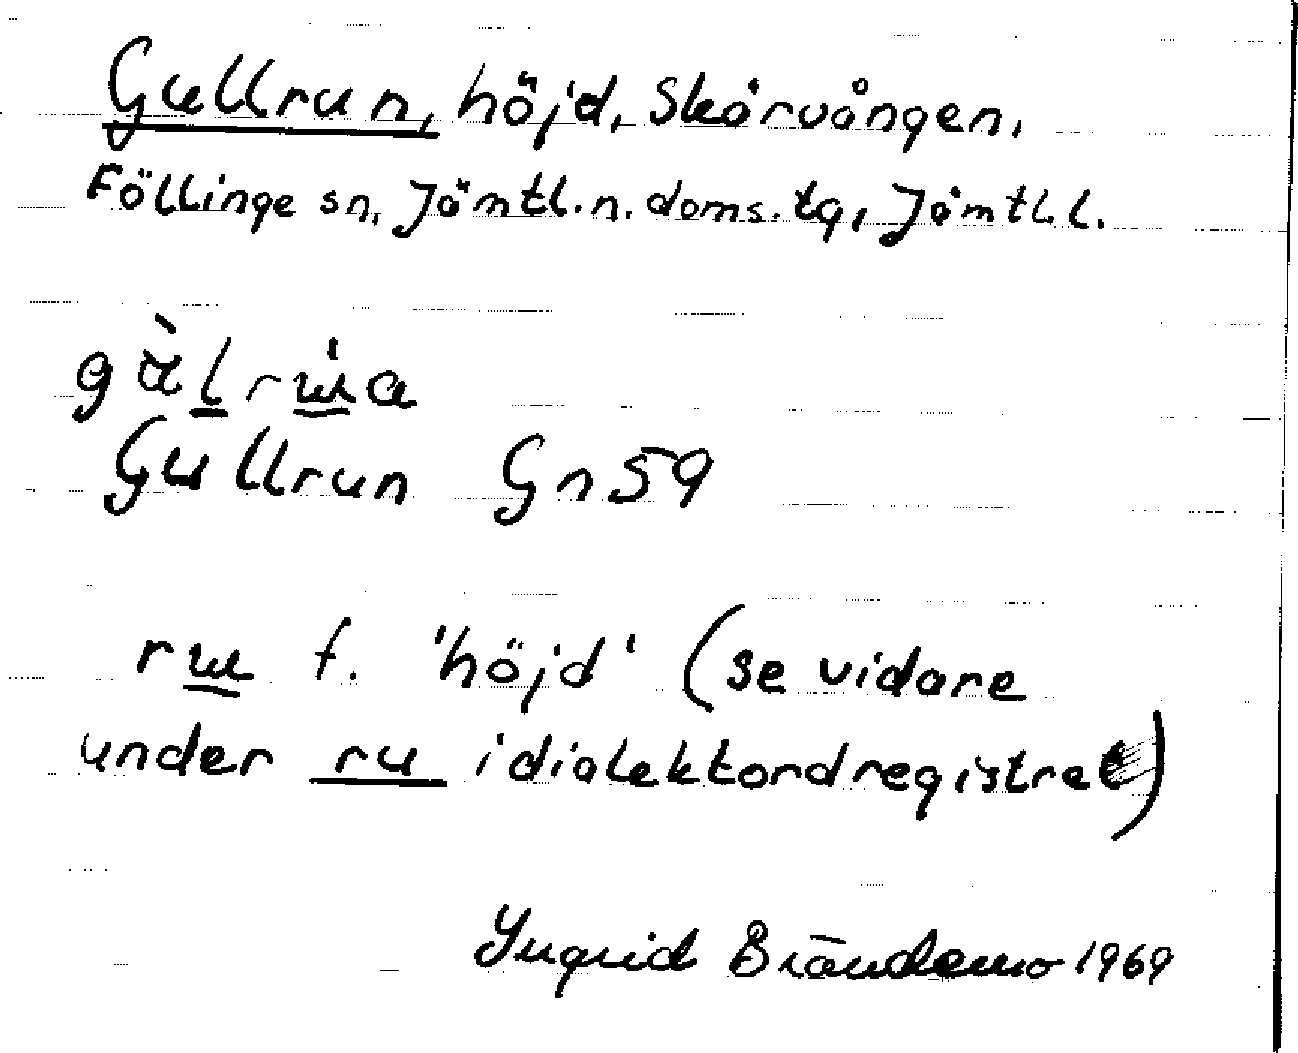 Gullrun, höjd, Skärvången,
Föllinge sn, Jämtl.n. doms. tg, Jämtl. l.
Gullrun Gn 59
f. 'höjd' (se vidare
under ru i dialektordregistret)
Ingrid Brändemo 1969